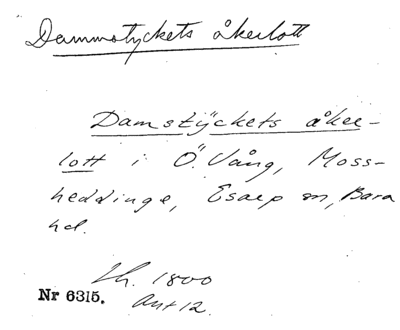 Dammstyckets åkerlott
Damstyckets åker-
lott i Ö. Vång, Moss-
heddinge, Esarp sn, Bara
hd.
Lh. 1800
Nr 6315. Akt 12.